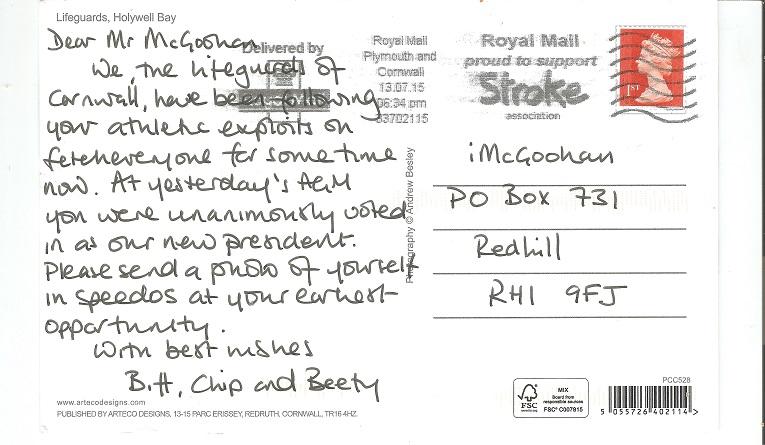 Lifeguards, Holywell Bay
Dear Mr McGoohan
We, the lifeguards of
Cornwall, have been following
your athletic exploits on
fetcheveryone for some time
now. At yesterday's AGM
you were unanimously voted
in as our new president.
Please send a photo of yourself
in speedos at your earliest
opportunity.
With best wishes
Biff, Chip and Beefy
www.artecodesigns.com
PUBLISHED BY ARTECO DESIGNS, 13-15 PARC ERISSEY, REDRUTH, CORNWALL, TR16 4HZ.
Photography © Andrew Besley
Delivered by
Royal Mail
Plymouth and
Cornwall
13.07.15
06:34 pm
83702115
Royal Mail
proud to support
Stroke
association
1ST
iMcGoohan
PO Box 731
Redhill
RH1 9FJ
FSC
MIX
Board from
responsible sources
FSC® C007815
PCC528
5 055726 402114 >